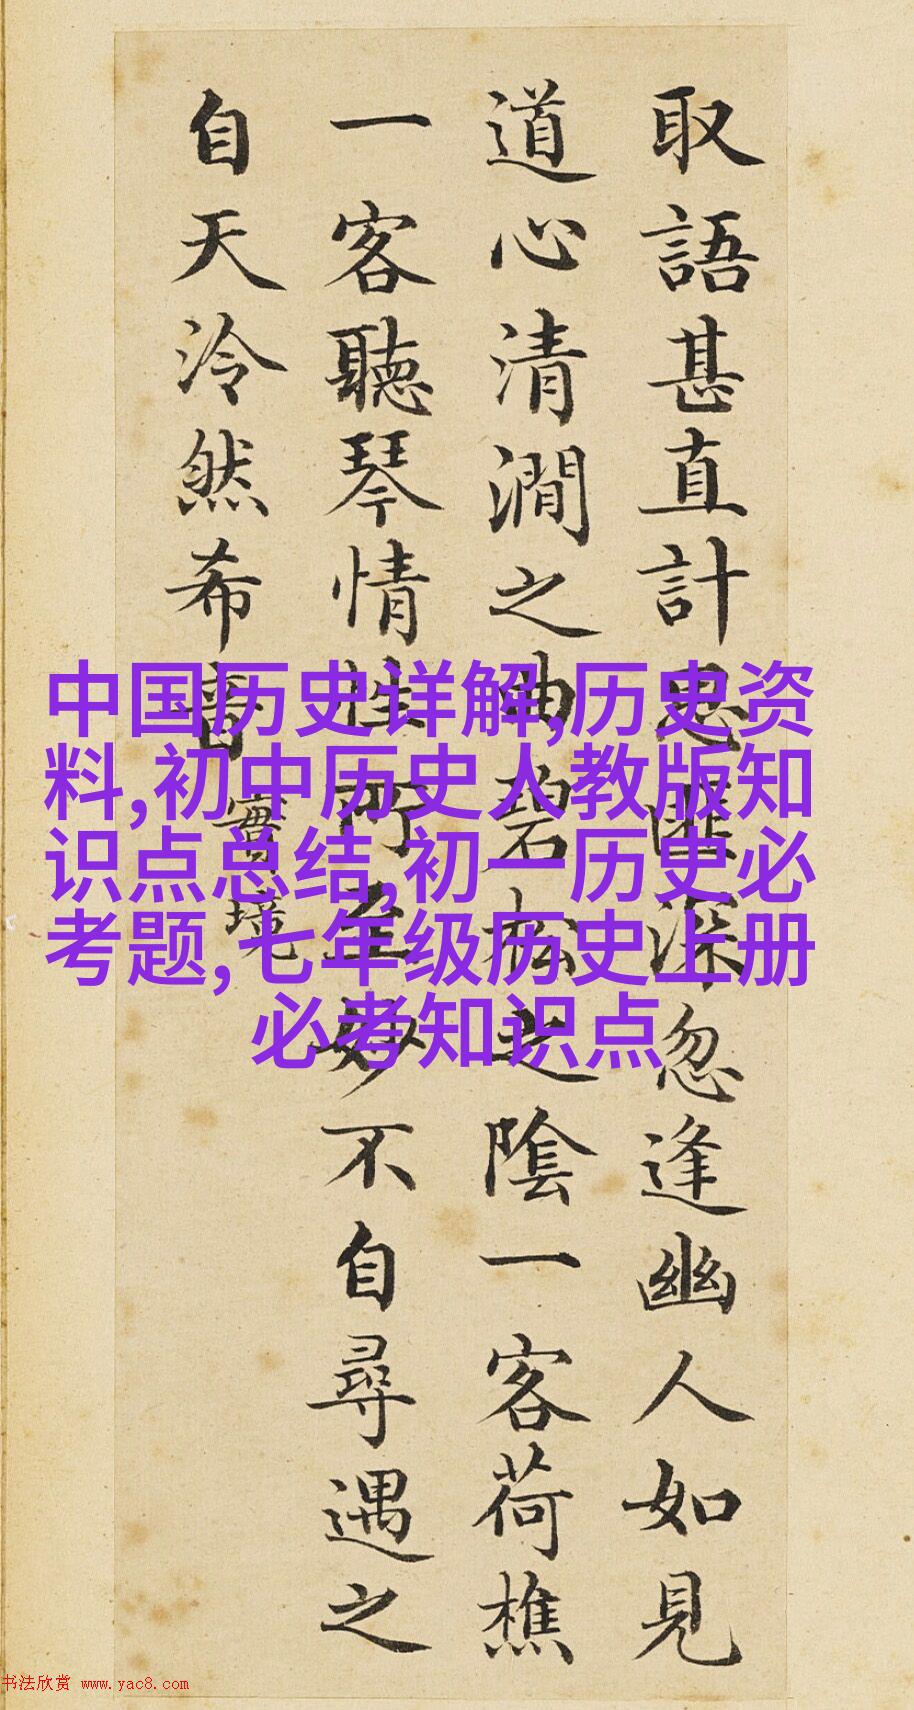 取語甚直計思匪深忽逢幽人如見
道心清澗之曲碧松之陰一客荷樵
一客聽琴情性所至妙不自尋遇之
自天泠然希音 實境
中国历史详解,历史资
料,初中历史人教版知
识点总结,初一历史必
考题,七年级历史上册
必考知识点
书法欣赏 www.yac8.com